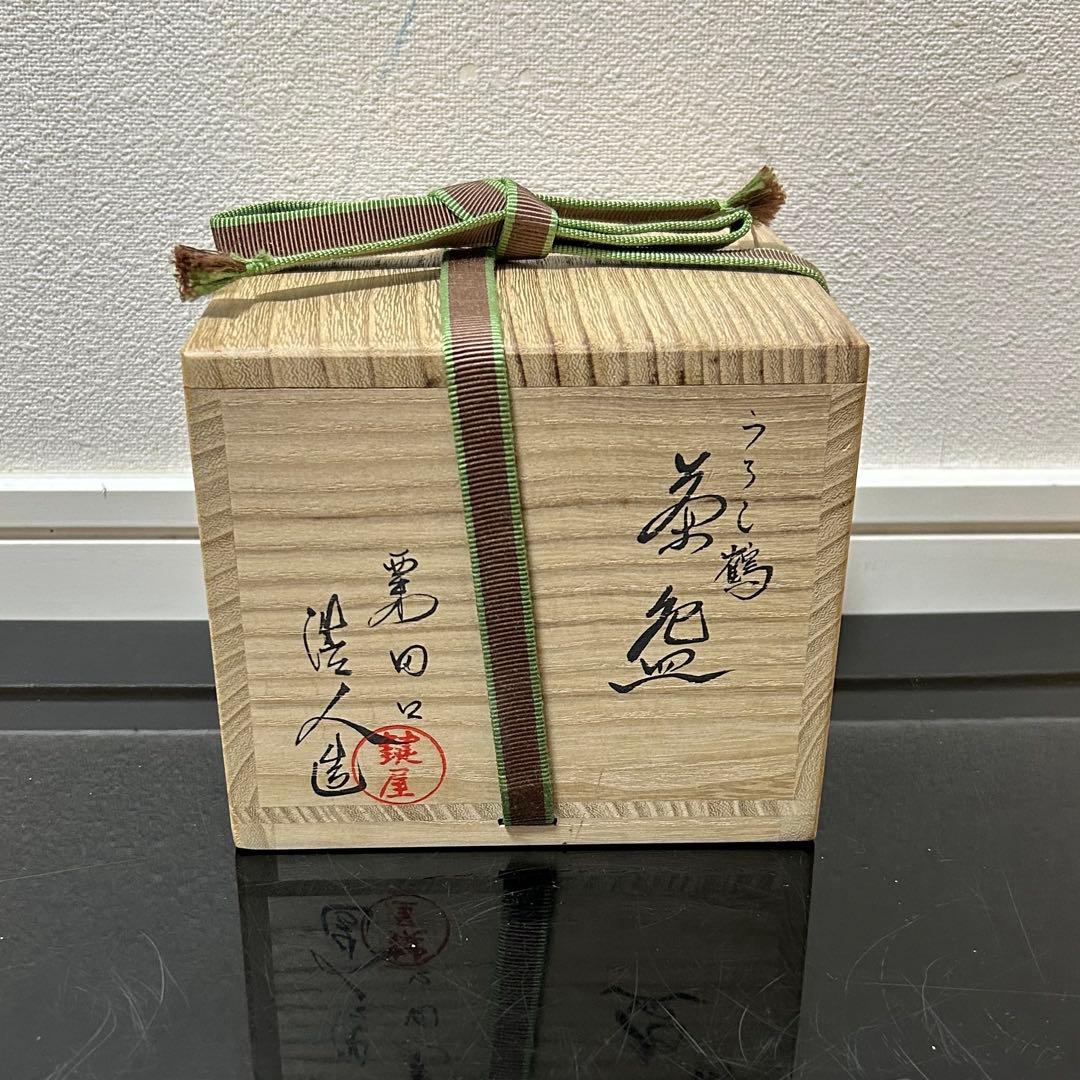 うろこ鶴
茶盌
粟田口
浩人造
鍵屋